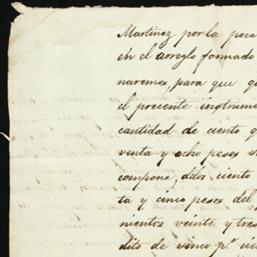 Martinez por la poca
en el arreglo formado
naremos, para que q
el precente instrume
cantidad de ciento q
venta y ocho pesos s
compone, ddos ciento
ta y cinco pesos del
nientos veinte y tres
dito de cinco p.r cie